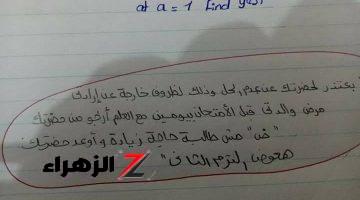 at a = 1 find y(5)
بعتذر لحضرتك عن عدم الحل وذلك لظروف خارجة عن إرادتى
مرض والدتى قبل الأمتحان بيومين مع العلم أرجو من حضرتك
"نص" مش طالبة حاجة زيادة وأوعد حضرتك
هعوض الترم الثانى"
الزهراء